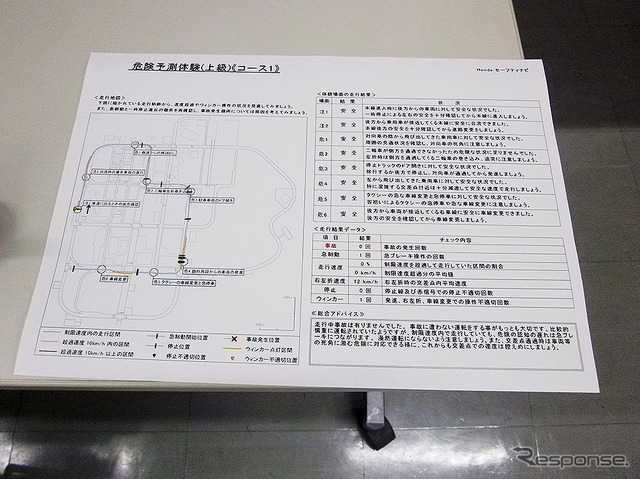 危険予測体験(上級)《コース1》
Honda セーフティナビ
＜走行地図＞
下図に描かれている走行軌跡から、速度超過やウィンカー操作の状況を見直してみましょう。
また、急制動と一時停止違反の個所を再確認し、事故発生個所については原因を考えてみましょう。
制限速度内の走行区間
超過速度 10km/h 内の区間
超過速度 10km/h 以上の区間
急制動開始位置
停止位置
停止不適切位置
事故発生位置
ウィンカー点灯区間
ウィンカー不適切位置
＜体験場面の走行結果＞
場面 結果 状況
注1 安全 本線進入時に後方からの車両に対して安全な状況でした。
一時停止による左右の安全を十分確認してから本線に進入しましょう。
注2 安全 後方から車両が接近してくる本線に安全に合流できました。
本線後方の安全を十分確認してから進路変更をしましょう。
危1 安全 対向車の陰から飛び出してきた乗用車に対して安全な状況でした。
周囲の交通状況を確認し、対向車の死角に注意しましょう。
危2 安全 二輪車が側方を通過できなかったため危険な状況に至りませんでした。
左折時は側方を通過してくる二輪車の巻き込み、追突に注意しましょう。
危3 安全 停止トラックのドア開きに対して安全な状況でした。
徐行するか後方で停止し、対向車が通過してから発進しましょう。
危4 安全 左から飛び出してきた乗用車に対して安全な状況でした。
特に混雑する交差点付近は十分減速して安全な速度で走行しましょう。
危5 安全 タクシーの急な車線変更と急停車に対して安全な状況でした。
客拾いによるタクシーの急停車や急な車線変更に注意しましょう。
危6 安全 後方から車両が接近してくる右車線に安全に車線変更できました。
後方の安全を確認してから車線変更しましょう。
＜走行結果データ＞
項目 結果 チェック内容
事故 0 回 事故の発生回数
急制動 1 回 急ブレーキ操作の回数
走行速度 0 % 制限速度を超過して走行していた区間の割合
0 km/h 制限速度超過分の平均値
右左折速度 12 km/h 右左折時の交差点内平均速度
停止 0 回 停止線及び赤信号での停止不適切回数
ウィンカー 1 回 発進、右左折、車線変更での操作不適切回数
＜総合アドバイス＞
走行中事故は有りませんでした。事故に遭わない運転をする事がもっとも大切です。比較的
慎重に運転されていたようですが、制限速度内で走行していても、危険の認知の遅れは急ブレ
ーキにつながります。漫然運転にならないよう注意しましょう。また、交差点通過時は車両等
の死角に潜む危険に対応できる様に、これからも交差点での速度は控えめにしましょう。
Response.